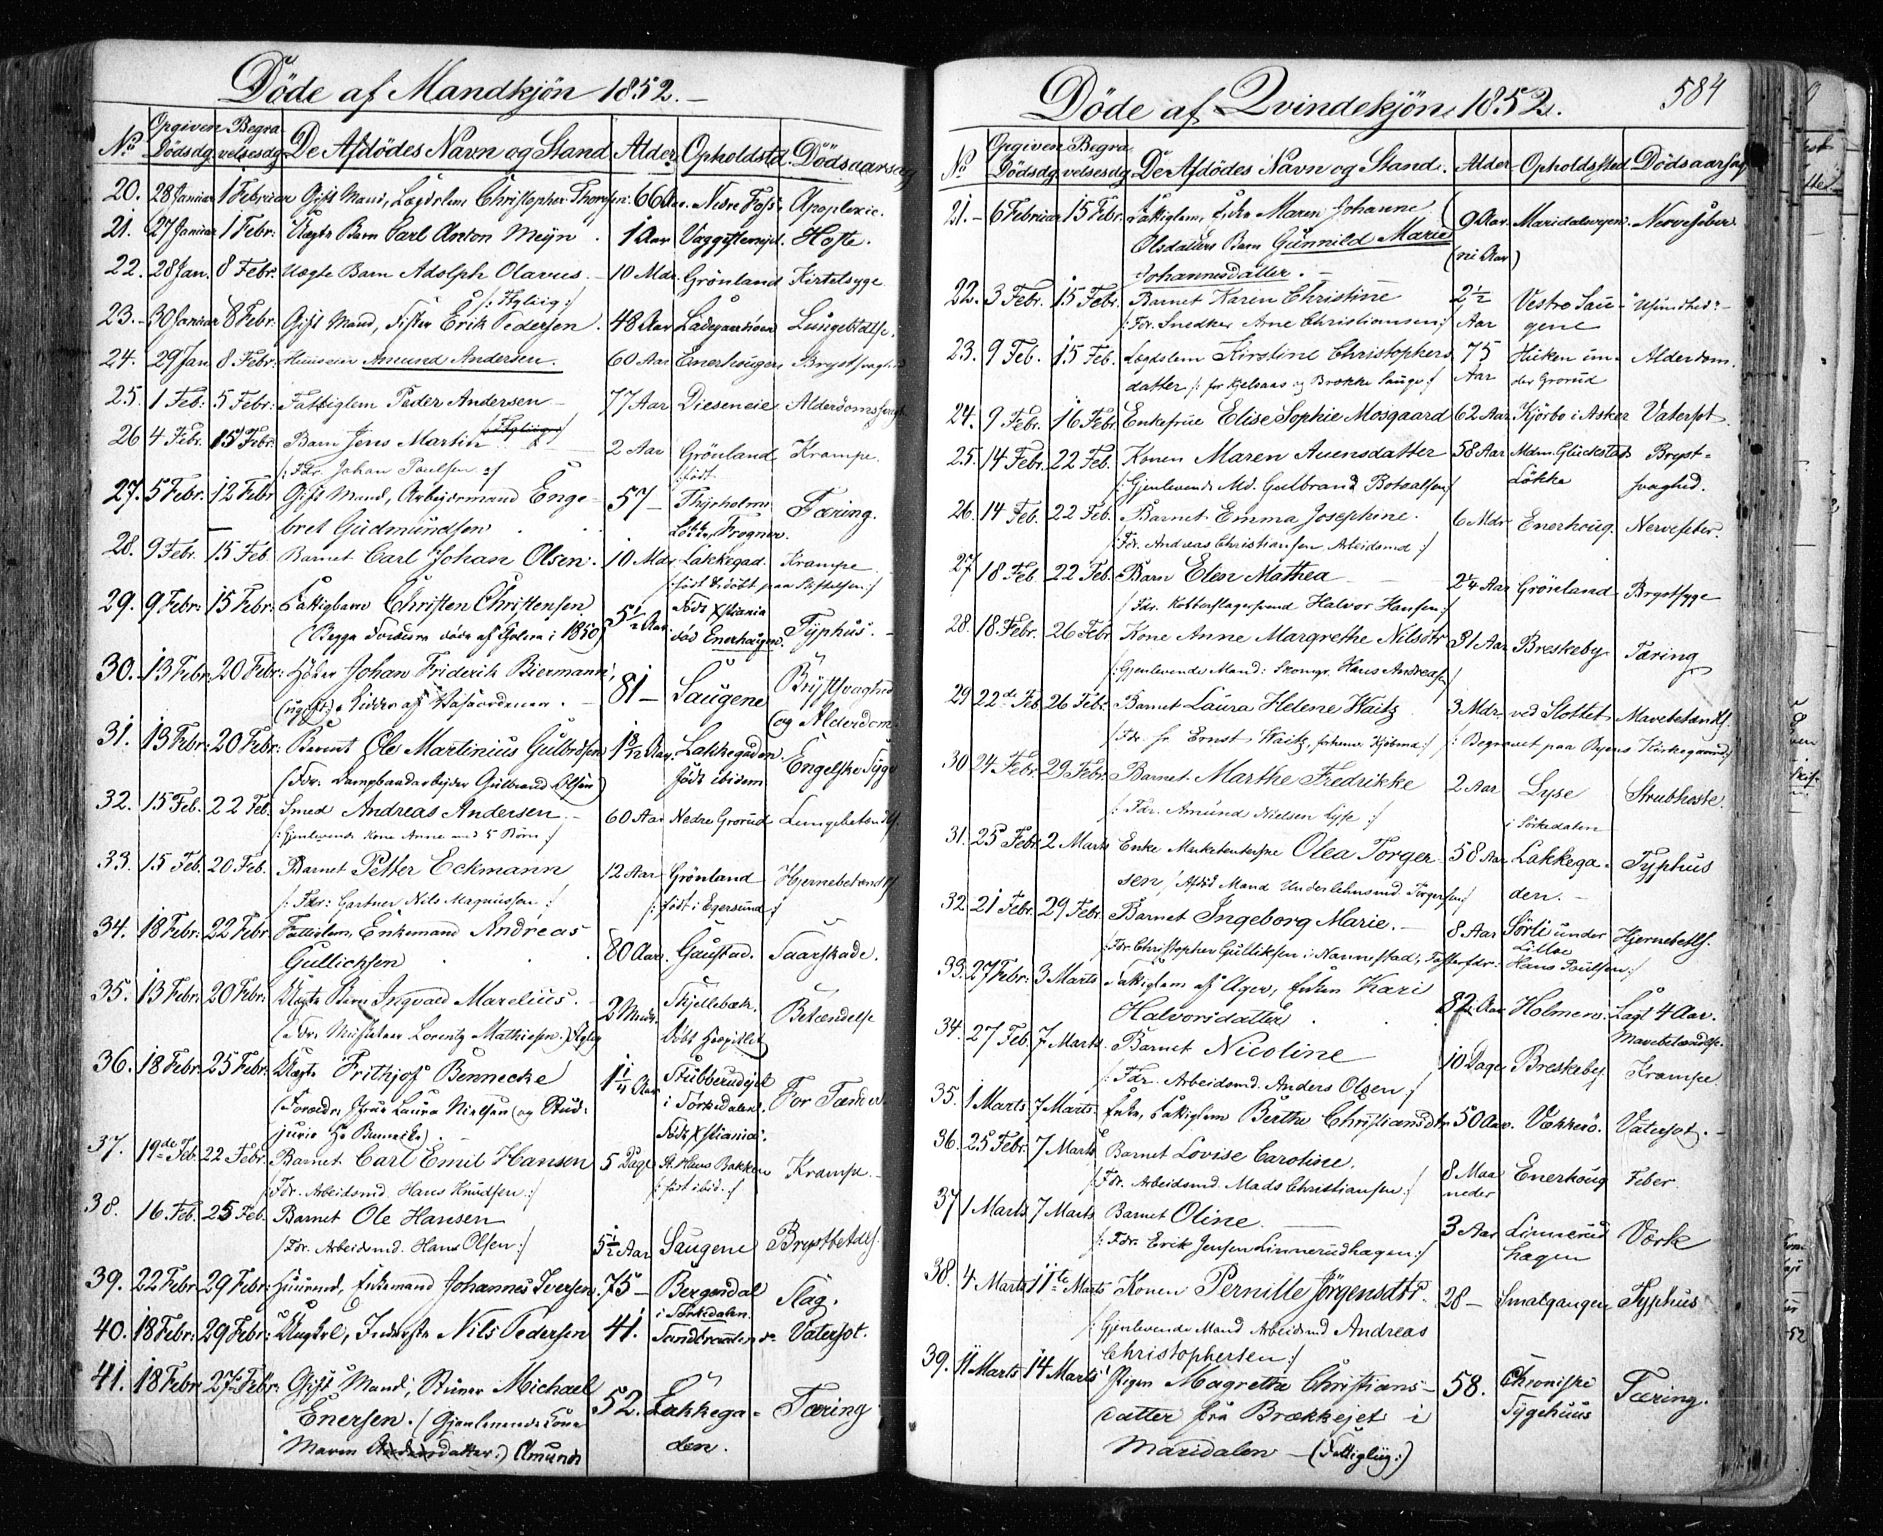 Döde af Mandkjön 1852.
No Opgiven Dödsdg. Begravelsesdg. De Afdödes Navn og Stand Alder Opholdstd Dödsaarsag
20. 28 Januar 1 Februar Gift Mand, Lægdslem Christopher Thoresen. 66 Aar. Nedre Foss. Apoplexie.
21. 27 Januar 1 Febr: Uægte Barn Carl Anton Meyn. 1 Aar Hoste.
22. 28 Jan. 8 Febr. Uægte Barn Adolph Olavus. 10 Mdr. Grönland Kirtelsyge
23. 30 Januar 8 Febr. Gift Mand, Erik Pedersen. 48 Aar Ladegaardsöen Lungebtdlse.
24. 29 Jan 8 Febr: Huusmn Amund Andersen. 60 Aar Enerhougen Brystsvaghed
25. 1 Feb: 5 Febr: Fattiglem Peder Andersen 77 Aar Dieseneie Alderdomssvagh
26 4 Febr. 15 Febr. Barn Jens Martin 2 Aar Grönland Krampe.
/: Fdr. Johan Paulsen :/
27. 5 Febr. 12 Febr Gift Mand, Arbeidsmand Enge- 57 – Thysholms Tæring.
bret Gudmundsen Frogner.
28. 9 Febr. 15 Feb. Barnet Carl Johan Olsen. 10 Mdr Lakkegad. Krampe
/: födt & döbt paa Stiftelsen :/
29. 9 Febr: 15 Febr: Fattigbarn Christen Christensen 5½ Aar Födt Xstiania Typhus.
(Begge Forældre döde af Cholera i 1850) död Enerhaugen.
30. 13 Febr: 20 Febr: Höker Johan Friderik Biermann, 81 – Saugene Brystsvaghed
(ugift) Ridder af Vasaordenen. og Alderdom.
31. 13 Febr: 20 Febr: Barnet Ole Martinius Gulbrdsen 1 8/12 Aar. Lakkegaden. Engelske Syge
(Fdr. Gulbrand Olsen) födt ibidem
32. 15 Feb. 22 Feb. Smed Andreas Andersen. 60 Aar Nedre Grorud Lungebetændls.
/: Gjenlevende Kone Anne med 5 Börn :/
33. 15 Feb. 20 Feb. Barnet Petter Eckmann 12 Aar Grönland Hjernebetændls
/: Fdr: Gartner Nils Magnussen :/ /: födt i Egersund :/
34. 18 Febr: 22 Febr. Fattiglem, Enkemand Andreas 80 Aar. Gaustad. Faarskade.
Gullichsen
35. 13 Febr. 20 Febr: Uægte Barn Ingvald Marelius. 2 Mdr. Skjellebæk. Betændelse
(Fdr. Lorentz Mathiesen.) Döbt Hospitlet
36. 18 Febr: 25 Febr: Uægte Frithjof Bennecke 1¼ Aar Stubberudejet For Tænder
(Forældre Pige Laura Nielsen og Stud: i Sörkedalen.
juris Hr Bennecke). Födt Xstiania.
37. 19de Feb. 22 Febr. Barnet Carl Emil Hansen 5 Dage St. Hans Bakken Krampe.
/: Fdr. Arbeidsmd. Hans Knudsen :/ /: födt ibid. :/
38. 16 Feb. 25 Feb. Barnet Ole Hansen 5½ Aar Saugene Brystbetdls.
/: Fdr. Arbeidsmd. Hans Olsen :/
39. 22 Febr. 29 Febr. Huusmd, Enkemand Johannes Iversen. 75 – Bergendal Slag.
i Sörkedalen.
40. 18 Febr: 29 Febr: Ungkrl, Inderste Nils Pedersen 41. do Vatersot.
41. 18 Febr. 27 Febr. Gift Mand, Michael 52. Lakkega- Tæring
Enersen. /: Gjenlevende Kone den.
Maren datter.) Amunds
Döde af Qvindekjön 1852. 584
No Opgiven Dödsdg. Begravelsesdg De Afdödes Navn og Stand. Alder Opholdssted Dödsaarsag
21. 6 Februar 15 Febr. Fattiglem, Enke Maren Johanne 9 Aar Maridalsvejen. Nervefeber
Olsdatters Barn Gunnild Marie (ni Aar)
Johannesdatter.
22. 3 Febr. 15 Febr. Barnet Karen Christine 2½ Vestre Sau- Usundhed
/: Fdr. Snedker Arne Christiansen :/ Aar gene
23. 9 Feb. 15 Feb. Lægdslem Kirstine Christophers 75 Huken un- Alderdom.
datter /: for Kjelsaas og Brække Sauge :/ Aar der Grorud
24. 9 Febr. 16 Febr. Enkefrue Elise Sophie Mosgaard 62 Aar Kjörbo i Asker Vatersot.
25. 14 Febr. 22 Feb. Konen Maren Auensdatter 58 Aar Mdm. Glückstad Bryst-
/: Gjenlevende Md. Gulbrand Botolfsen :/ Lökke svaghed.
26. 14 Feb. 22 Feb. Barnet Emma Josephine. 6 Mdr Enerhoug. Nervefeber.
/: Fdr. Andreas Christiansen Arbeidsmd :/
27 18 Feb. 22 Feb. Barn Elen Mathea 2¼ Aar Grönland Brystsyge
/: Fdr. Kobberslagersvend Halvor Hansen :/
28. 18 Febr. 26 Febr Kone Anne Margrethe Nilsdtr 31 Aar Breskeby Tæring
/: Gjenlevende Mand: Skomgr. Hans Andreassen :/
29 22de Feb 26 Febr. Barnet Laura Helene Waitz 3 Mdr. ved Slottet Mavebetændls.
/: Fdr. hr Ernst Waitz, forhenv. Kjöbmd :/ /: Begravet paa Byens Kirkegaard :/
30 24 Febr. 29 Febr. Barnet Marthe Fredrikke 2 Aar Lyse Strubhoste.
/: Fdr. Amund Nielsen Lyse :/ i Sörkedalen
31. 25 Febr. 2 Marts Enke Marketenterske Olea Torger- 58 Aar Lakkega- Typhus
sen, /: Afdöd Mand Underlehnsmd. Torgersen :/ den.
32. 21 Febr. 29 Febr. Barnet Ingeborg Marie. 8 Aar Sörli under Hjernebetls.
/: Fdr. Christopher Gulliksen i Nannestad, Fosterfdr: Lilloe Hans Poulsen :/
33. 27 Febr. 3 Marts Fattiglem af Ager, Enken Kari 82 Aar Holmen. Lagt 4 Aar.
Halvorsdatter Mavebetændelse.
34. 27 Feb. 7 Marts. Barnet Nicoline 10 Dage Breskeby. Krampe
/: Fdr. Arbeidsmd. Anders Olsen :/
35. 1 Marts 7 Marts. Enke, Fattiglem Berthe Christiansdtr 50 Aar. Vækkerö. Vatersot.
36. 25 Febr. 7 Marts Barnet Lovise Caroline. 8 Maa Enerhoug Feber
/: Fdr. Arbeidsmd. Mads Christiansen :/ neder
37 1 Marts 7 Marts Barnet Oline. 3 Aar Linnerud Værk
/: Fdr. Erik Jensen Linnerudhagen :/ hagen
38. 4 Marts 11te Marts Konen Pernille Jörgensdtr. 28 – Smalgangen Typhus
/: Gjenlevende Mand Arbeidsmd Andreas
Christophersen :/
39. 11 Marts 14 Marts Pigen Magrethe Christians- 58. Chroniske Tæring.
datter fra Brækkejet i Sygehuus
Maridalen – (Fattiglig :)